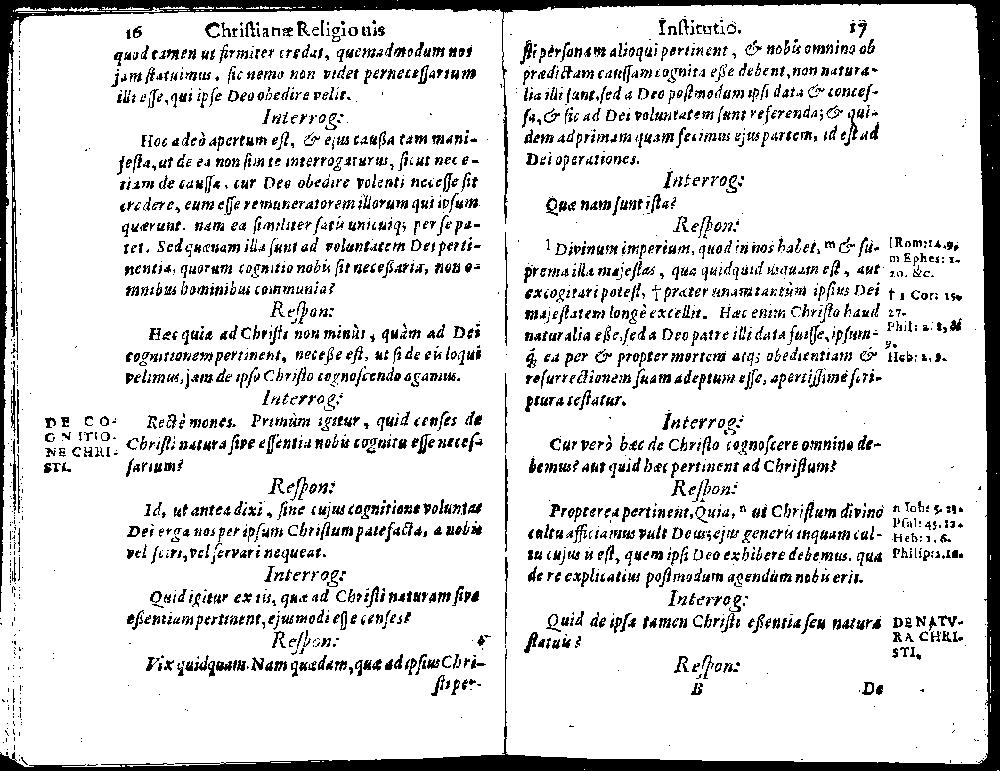 16 Christianæ Religionis
quod tamen ut firmiter credat, quemadmodum nos
jam statuimus, sic nemo non videt pernecessarium
illi esse, qui ipse Deo obedire velit.
Interrog:
Hoc adeò apertum est, & ejus caußa tam mani-
festa, ut de ea non sim te interrogaturus, sicut nec e-
tiam de caussa, cur Deo obedire volenti necesse sit
credere, eum esse remuneratorem illorum qui ipsum
quærunt. nam ea similiter satis unicuiq; per se pa-
tet. Sed quænam illa sunt ad voluntatem Dei perti-
nentia, quorum cognitio nobis sit neceßaria, non o-
mnibus hominibus communia?
Respon:
Hæc quia ad Christi non minùs, quàm ad Dei
cognitionem pertinent, neceße est, ut si de eis loqui
velimus, jam de ipso Christo cognoscendo agamus.
Interrog:
Rectè mones. Primùm igitur, quid censes de
Christi natura sive essentia nobis cognitu esse necef-
sarium?
DE CO-
GNITIO-
NE CHRI-
STI.
Respon:
Id, ut antea dixi, sine cujus cognitione voluntas
Dei erga nos per ipsum Christum patefacta, a nobis
vel sciri, vel servari nequeat.
Interrog:
Quid igitur ex iis, quæ ad Christi naturam sive
eßentiam pertinent, ejusmodi esse censes?
Respon:
Vix quidquam. Nam quædam, quæ ad ipsius Chri-
sti per-
Institutio. 17
sti personam alioqui pertinent, & nobis omnino ob
prædictam caussam cognita eße debent, non natura-
lia illi sunt, sed a Deo postmodum ipsi data & conces-
sa, & sic ad Dei voluntatem sunt referenda; & qui-
dem ad primam quam fecimus ejus partem, id est ad
Dei operationes.
Interrog:
Quæ nam sunt ista?
Respon:
l Divinum imperium, quod in nos habet, m & su-
prema illa majestas, quæ quidquid usquam est, aut
excogitari potest, † præter unam tantùm ipsius Dei
majestatem longè excellit. Hæc enim Christo haud
naturalia eße, sed a Deo patre illi data fuisse, ipsum-
q; ea per & propter mortem atq; obedientiam &
resurrectionem suam adeptum esse, apertissimè scri-
ptura testatur.
l Rom: 14. 9.
m Ephes: 1.
20. &c.
† 1 Cor: 15.
27.
Phil: 2. 8, &
9.
Heb: 2. 9.
Interrog:
Cur verò hæc de Christo cognoscere omnino de-
bemus? aut quid hæc pertinent ad Christum?
Respon:
Propterea pertinent, Quia, n ut Christum divino
cultu afficiamus vult Deus; ejus generis inquam cul-
tu cujus is est, quem ipsi Deo exhibere debemus. qua
de re explicatius postmodum agendum nobis erit.
n Ioh: 5. 23.
Psal: 45. 12.
Heb: 1. 6.
Philip: 2. 10.
Interrog:
Quid de ipsa tamen Christi eßentia seu natura
statuis?
DE NATV-
RA CHRI-
STI.
Respon:
B De